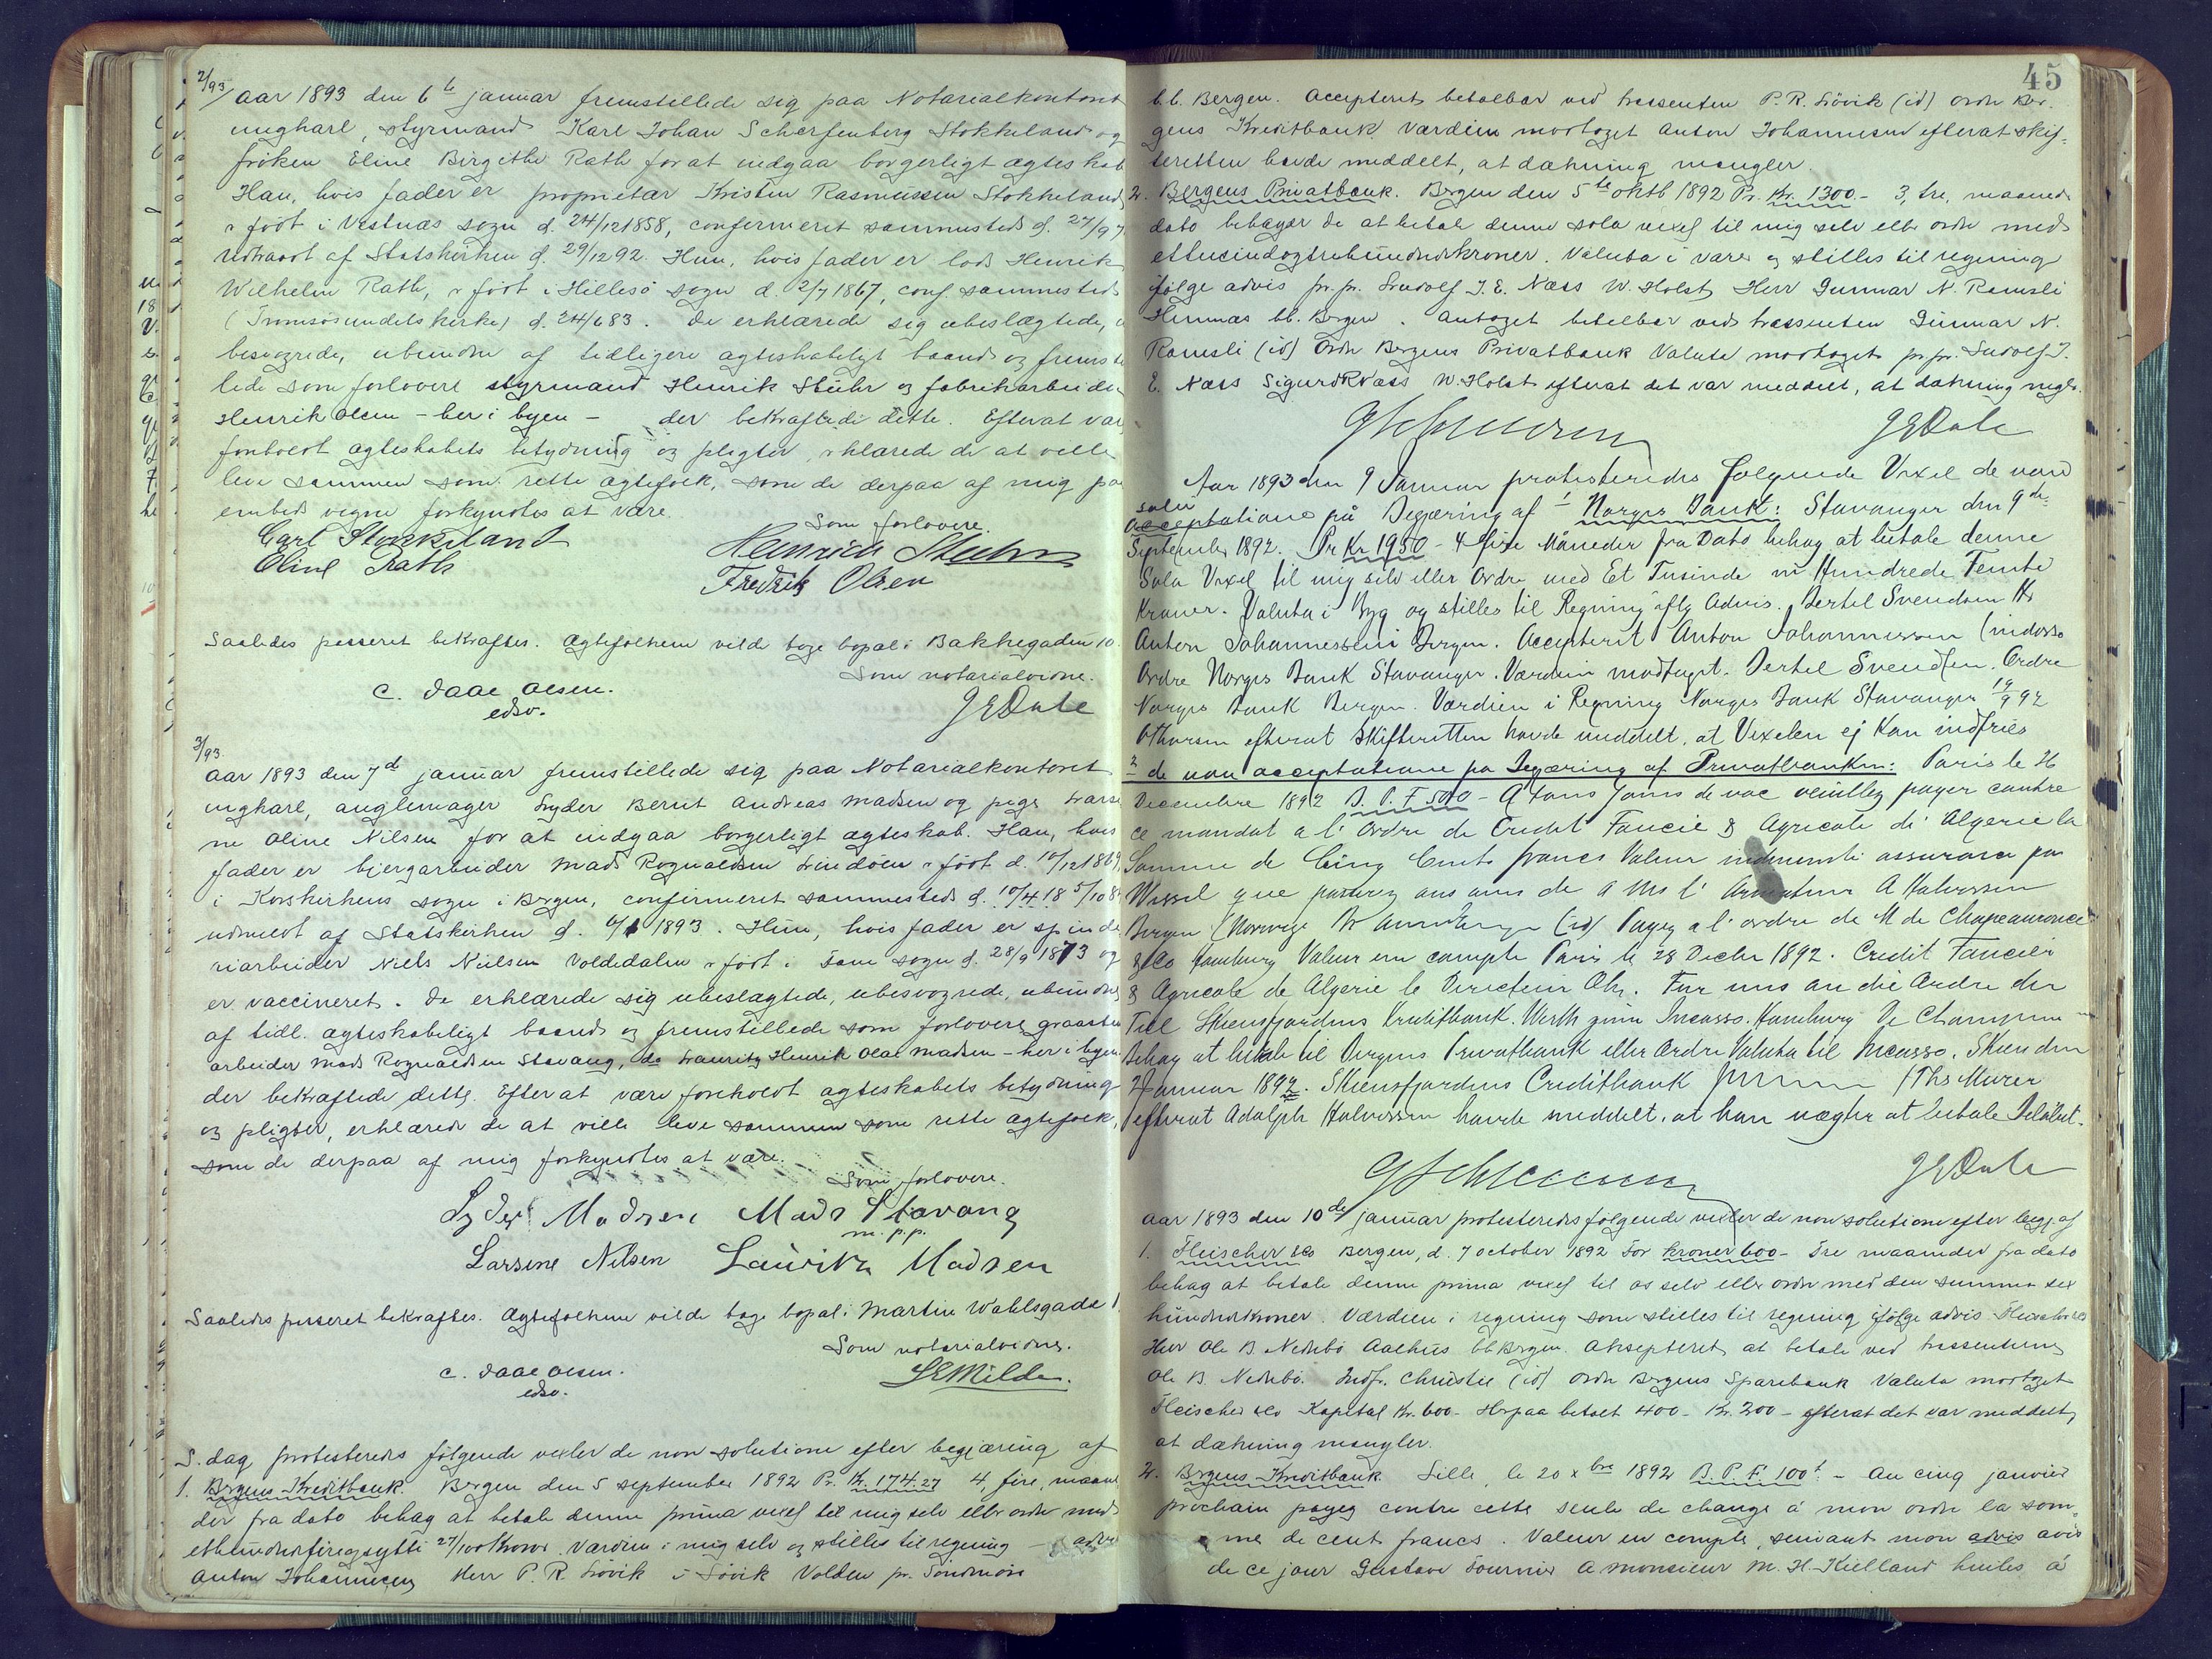 2/93
Aar 1893 den 6te januar fremstillede sig paa Notarialkontoret
ungkarl, styrmand Karl Johan Scharfenberg Stokkeland og
frøken Eline Birgithe Rath for at indgaa borgerligt ægteskab
Han, hvis fader er proprietær Kristen Rasmussen Stokkeland
er født i Vestnæs sogn d. 24/12 1858, confirmeret sammesteds d. 27/9 7
udtraadt af Statskirken d. 29/12 92. Hun, hvis fader er lods Henrik
Wilhelm Rath, er født i Hillesø sogn d. 2/7 1867, conf. sammesteds
(Tromsøsundets kirke) d. 24/6 83. De erklærede sig ubeslægtede, u
besvogrede, ubundne af tidligere ægteskabeligt baand og fremstil
lede som forlovere styrmand Henrik Stuhr og fabrikarbeider
Henrik Olsen – her i byen – der bekræftede dette. Efterat var
foreholdt ægteskabets betydning og pligter, erklærede de at ville
leve sammen som rette ægtefolk, som de derpaa af mig paa
embeds vegne forkyndtes at være.
Som forlovere.
Carl Stokkeland Heinrich Stuhr
Eline Rath Fredrik Olsen
Saaledes passeret bekræftes. Ægtefolkene vilde tage bopæl i Bakkegaden 10.
Som notarialvidne.
C. Daae Olsen. J E Dale
edsv.
3/93
Aar 1893 den 7de januar fremstillede sig paa Notarialkontoret
ungkarl, anglemager Lyder Bernt Andreas Madsen og pige Larsi
ne Oline Nilsen for at indgaa borgerligt ægteskab. Han, hvis
fader er bjergarbeider Mads Rognaldsen Lindøen er født d. 10/12 1869
i Korskirkens sogn i Bergen, confirmeret sammesteds d. 10/4 18 5/10 8
udmeldt af Statskirken d. 4/1 1893. Hun, hvis fader er spinde
riarbeider Niels Nielsen Voldedalen er født i Fane sogn d. 28/9 1873 og
er vaccineret. De erklærede sig ubeslægtede, ubesvogrede, ubundne
af tidl. ægteskabeligt baand og fremstillede som forlovere graasten
arbeider Mads Rognaldsen Stavang, do Lauritz Henrik Olai Madsen – her i byen
der bekræftede dette. Efter at være foreholdt ægteskabets betydning
og pligter, erklærede de at ville leve sammen som rette ægtefolk,
som de derpaa af mig forkyndtes at være.
Som forlovere.
Lyder Madsen Mads Stavang
m. p. p.
Larsine Nilsen Lauritz Madsen
Saaledes passeret bekræftes. Ægtefolkene vilde tage bopæl i Martin Wahlsgade 1.
Som notarialvidne.
C. Daae Olsen. S E Milde.
edsv.
S. dag protesteredes følgende vexler de non solutione efter begjæring af
1. Bergens Kreditbank. Bergen den 5 september 1892 Pr. Kr. 174.27 4, fire, maane
der fra dato behag at betale denne prima vexel til mig selv eller ordre med
ethundredefiregsytti 27/100 Kroner. Værdien i mig selv og stilles til regning – advis
Anton Johannesen Herr P. R. Løvik i Løvik Volden pr. Søndmøre
45
b.b. Bergen. Accepteret betalbar ved trassenten P. R. Løvik (id) ordre Ber-
gens Kreditbank Værdien modtaget Anton Johannesen efterat skif-
teretten havde meddelt, at dækning mangler.
2. Bergens Privatbank. Bergen den 5te oktb 1892 Pr. Kr. 1300.– 3, tre, maaneder
dato behager De at betale denne sola vexel til mig selv eller ordre med
ettusindogtrehundredekroner. Valuta i varer og stilles til regning
ifølge advis pr. pr. Ludolf J. E. Næss W. Holst Herr Gunnar N. Ramsli
Hennæs bb. Bergen. Antaget betalbar ved trassenten Gunnar N.
Ramsli (id) Ordre Bergens Privatbank Valuta modtaget pr pr. Ludolf J.
E. Næss Sigurd R Næss W. Holst efterat det var meddelt, at dækning mgl.
J E Dale
Aar 1893 den 9 Januar protesteredes følgende Vexel de non
solu
acceptatione på Begæring af 1 Norges Bank: Stavanger den 9de
September 1892. Pr Kr 1950 – 4 fire Måneder fra Dato behag at betale denne
Sola Vexel til mig selv eller Ordre med Et Tusinde ni Hundrede Femti
Kroner. Valuta i Byg og stilles til Regning iflg Advis. Bertel Svendsen Hr
Anton Johannessen i Bergen. Accepterit Anton Johannessen (indosso
Ordre Norges Bank Stavanger. Værdien modtaget. Bertel Svendsen. Ordre
Norges Bank Bergen. Værdien i Regning Norges Bank Stavanger 19/9 92
efterat Skifteretten havde meddelt, at Vexelen ej kan indfries
2 de non acceptatione på Begæring af Privatbanken: Paris le 26
Decembre 1892 B. P. F 500 – A jours de vue veuillez payer contre
ce mandat a l' Ordre de Credit Foncie & Agricole di Algerie la
Somme de Cinq Cents francs Valeur assurance
que de a Ms l' Armateur A Halvorsen
Bergen (Norvège (id) Payez a l' ordre de M de Chapeaurouge
& Co Hamburg Valeur en compte Paris le 28 Decbr 1892. Credit Foncier
& Agricole de Algerie le Directeur. Für uns an die Ordre der
Titl Skiensfjordens Kreditbank. Werth zum Incasso. Hamburg De
Behag at betale til Bergens Privatbank eller Ordre Valuta til Incasso. Skien den
7 Januar 1892. Skiensfjordens Creditbank / Ths Murer
efterat Adolph Halvorsen havde meddelt, at han nægter at betale Beløbet.
J E Dale
Aar 1893 den 10de januar protesteredes følgende vexler de non solutione efter begj. af
1. Fleischer & Co Bergen, d. 7 october 1892 For kroner 600 – Tre maaneder fra dato
behag at betale denne prima vexel til os selv eller ordre med den summa sex
hundredekroner. Værdien i regning som stilles til regning ifølge advis Fleischer & Co
Herr Ole B. Nedrebø Aalhus bb Bergen. Aksepteret at betale ved trassenterne
Ole B. Nedrebø. Indf. Christie (id) Ordre Bergens Sparebank Valuta modtaget
Fleischer & Co Kapital Kr. 600 – Herpaa betalt 400 – Kr. 200 – efterat det var meddelt,
at dækning mangler.
2. Bergens Kreditbank Lille, le 20 xbre 1892 B. P. F. 100 – Au cinq janvier
prochain payez contre cette seule de change á mon ordre la som-
me de cent francs. Valeur en compte, suivant mon advis avis
de ce jour Gustave Fournier A monsieur M. H. Kielland huiles á